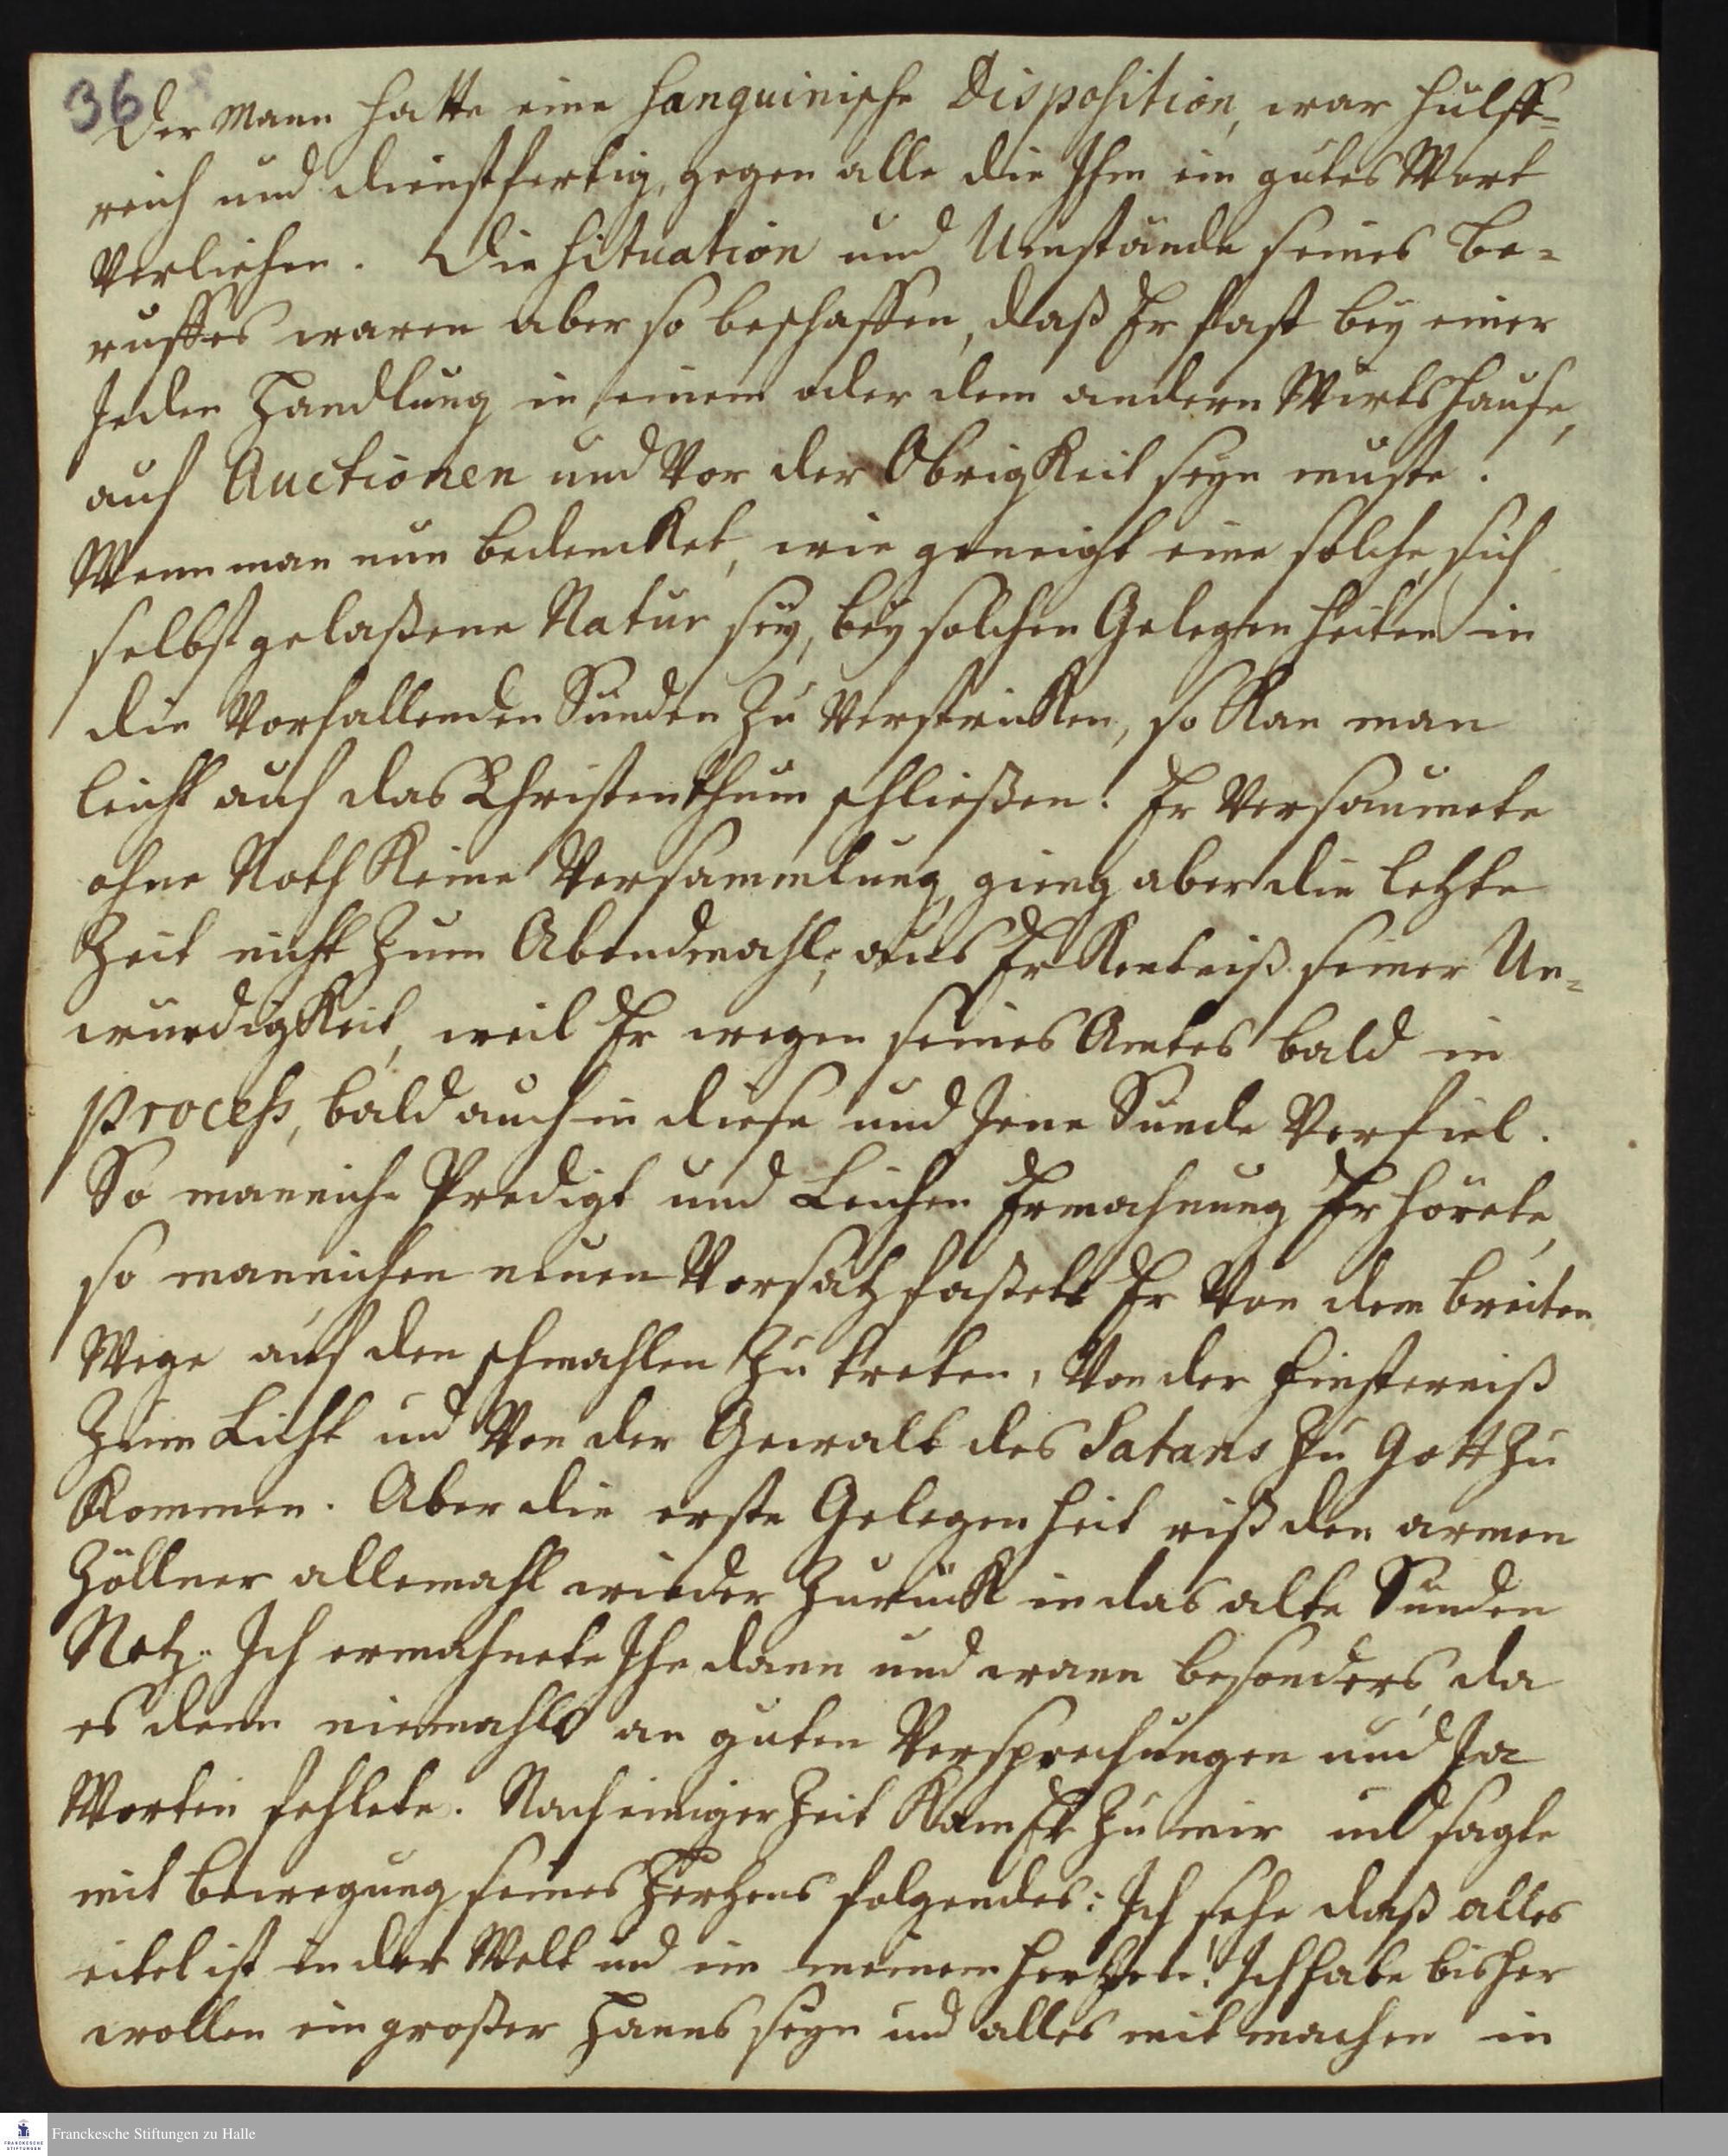 36
Der Mann hatte eine sanguinische Disposition, war hülff-
reich und dienstfertig, gegen alle die Ihm ein gutes Wort
verliehen. Die Situation und Umstände seines Be-
ruffes waren aber so beschaffen, daß Er fast bey einer
Jeden Handlung in einem oder dem andern Wirtshause,
auf Auctionen und vor der Obrigkeit seyn muste!
Wenn man nun bedencket, wie geneigt eine solche, sich
selbst gelaßene Natur sey, bey solchen Gelegenheiten in
die vorfallenden Sünden zu verstricken, so kan man
leicht auf das Christenthum schließen! Er versäumete
ohne Noth keine Versammlung, gieng aber die letzte
Zeit nicht zum Abendmahl, aus Erkentniß seiner Un-
würdigkeit, weil Er wegen seines Amtes bald in
Process, bald auch in diese und Jene Sünde verfiel.
So manniche Predigt und Leichen Ermahnung Er hörete,
so mannichen neuen Vorsatz faßete Er von dem breiten
Wege auf den schmahlen zu treten, von der Finsterniß
zum Licht und von der Gewalt des Satans zu Gott zu
kommen. Aber die erste Gelegenheit riß den armen
Zöllner allemahl wieder zurück in das alte Sünden
Netz. Ich ermahnete Ihn dann und wann besonders, da
es denn niemahls an guten Versprechungen und Ja
Worten fehlete. Nach einiger Zeit kam Er zu mir und sagte
mit bewegung seines Hertzens folgendes: Ich sehe daß alles
eitel ist in der Welt und in meinem Hertzen! Ich habe bisher
wollen ein großer Hanns seyn und alles mit machen in
Franckesche Stiftungen zu Halle
FRANCKESCHE
STIFTUNGEN